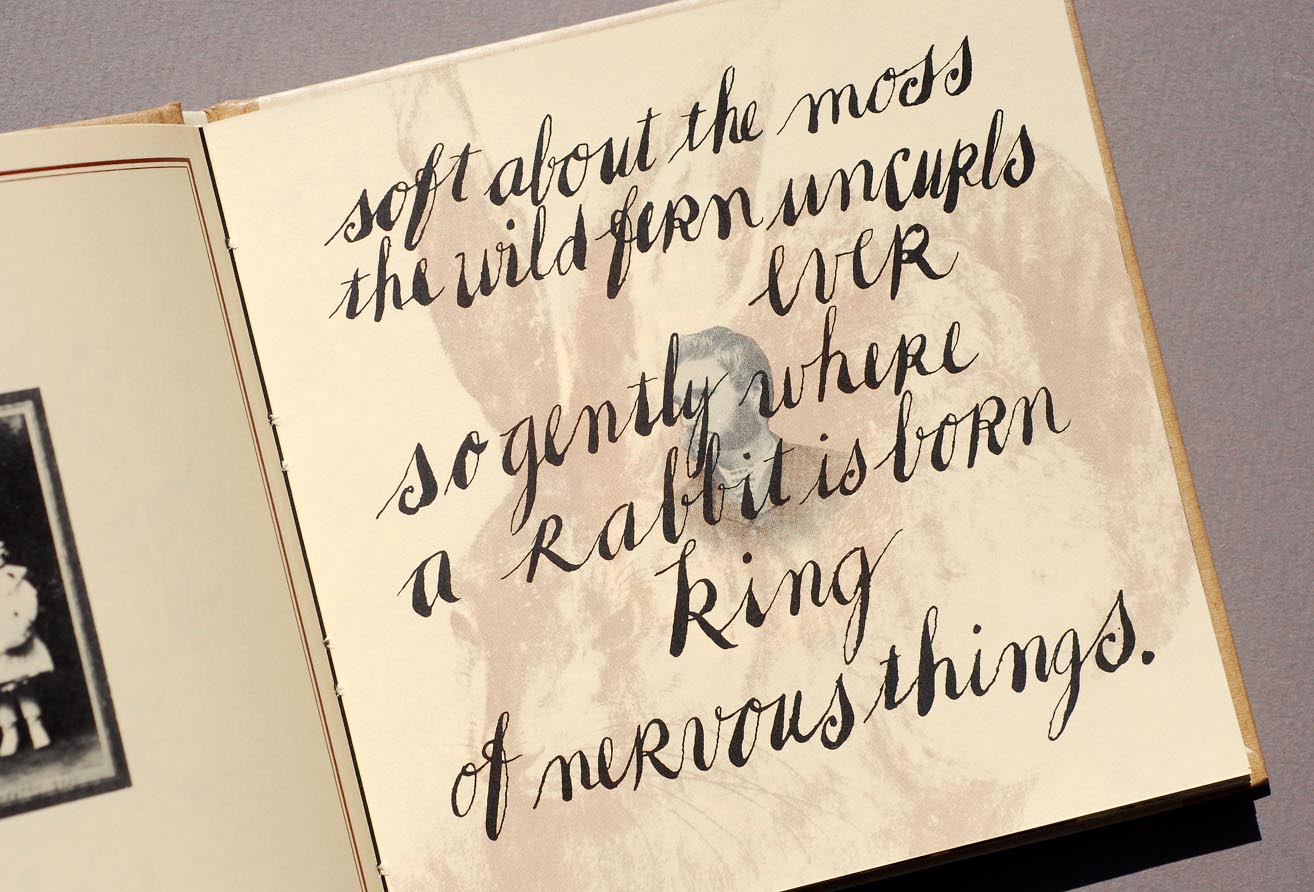 soft about the moss
the wild fern uncurls
ever
so gently where
a rabbit is born
king
of nervous things.